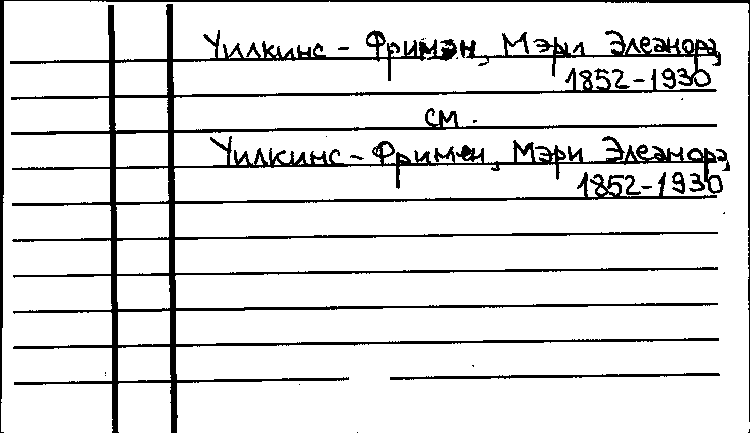 Уилкинс - Фримэн, Мэри Элеанора,
1852-1930
см.
Уилкинс - Фримен, Мэри Элеанора,
1852-1930